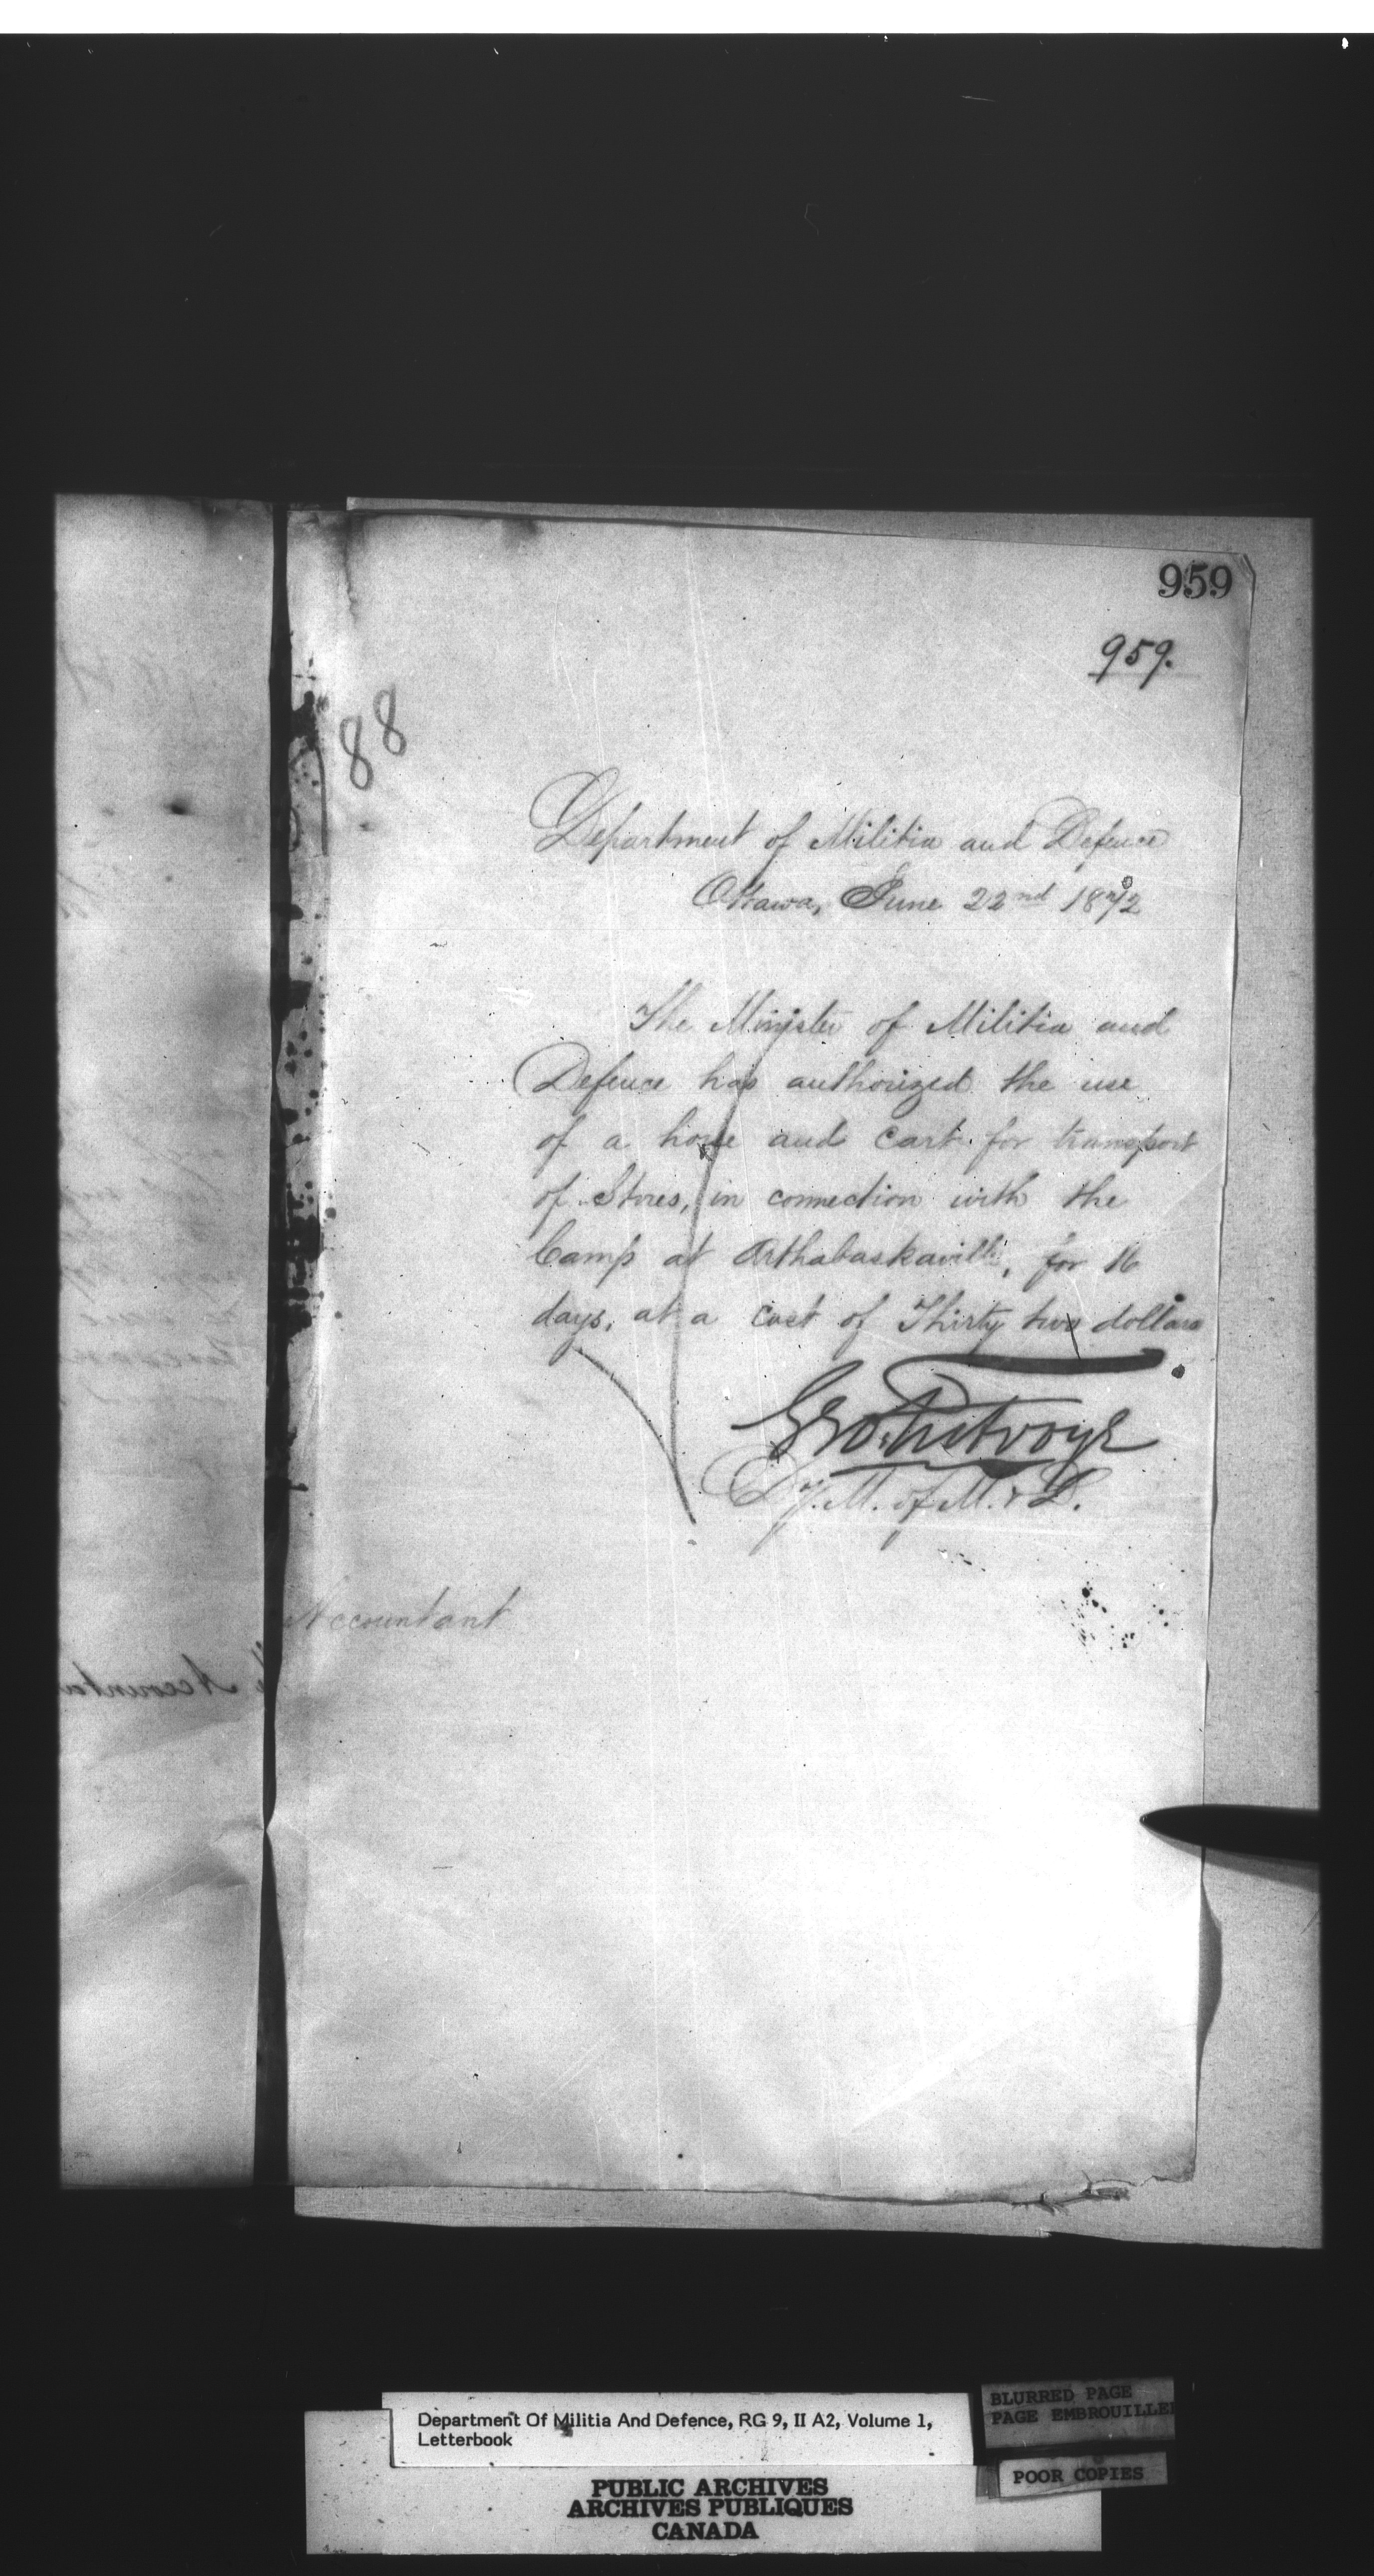 959
959.
88
Department of Militia and Defence
Ottawa, June 22nd 1872
The Minister of Militia and
Defence has authorized the use
of a horse and Cart for transport
of Stores, in connection with the
Camp at Arthabaskaville, for 16
days, at a cost of Thirty two dollars
Geo. Futvoye
Dy. M. of M. & D.
Accountant
Department Of Militia And Defence, RG 9, II A2, Volume 1,
Letterbook
BLURRED PAGE
PAGE EMBROUILLEE
POOR COPIES
PUBLIC ARCHIVES
ARCHIVES PUBLIQUES
CANADA